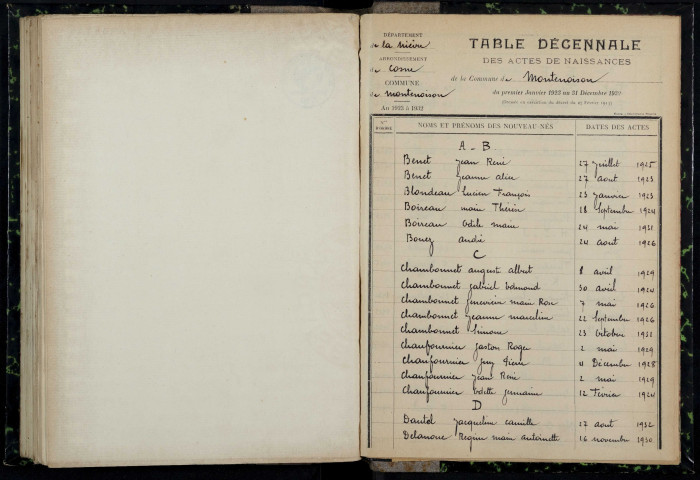 DÉPARTEMENT
de la Nièvre
ARRONDISSEMENT
de Cosne
COMMUNE
de Montenoison
An 1923 à 1932
TABLE DÉCENNALE
DES ACTES DE NAISSANCES
de la Commune de Montenoison
du premier Janvier 1923 au 31 Décembre 1932
NOMS ET PRÉNOMS DES NOUVEAU-NÉS DATES DES ACTES
A - B
Benet Jean René 27 Juillet 1925
Benet Jeanne aline 27 aout 1923
Blondeau Lucien François 23 Janvier 1923
Boireau marie Thérèse 18 Septembre 1924
Boireau Odile marie 24 mai 1931
Bouez andré 24 aout 1926
C
Chambonnet august albert 8 avril 1929
Chambonnet Gabriel Edmond 30 avril 1924
Chambonnet Geneviève marie Rose 7 mai 1926
Chambonnet Jeanne marcelin 22 Septembre 1926
Chambonnet Simone 23 Octobre 1931
Chaufournier Gaston Roger 2 mai 1929
Chaufournier Guy Pierre 4 Décembre 1928
Chaufournier Jean René 2 mai 1929
Chaufournier Odette Germaine 12 Février 1924
D
Jacqueline camille 27 aout 1932
Delanoue Regine marie antoinette 16 novembre 1930